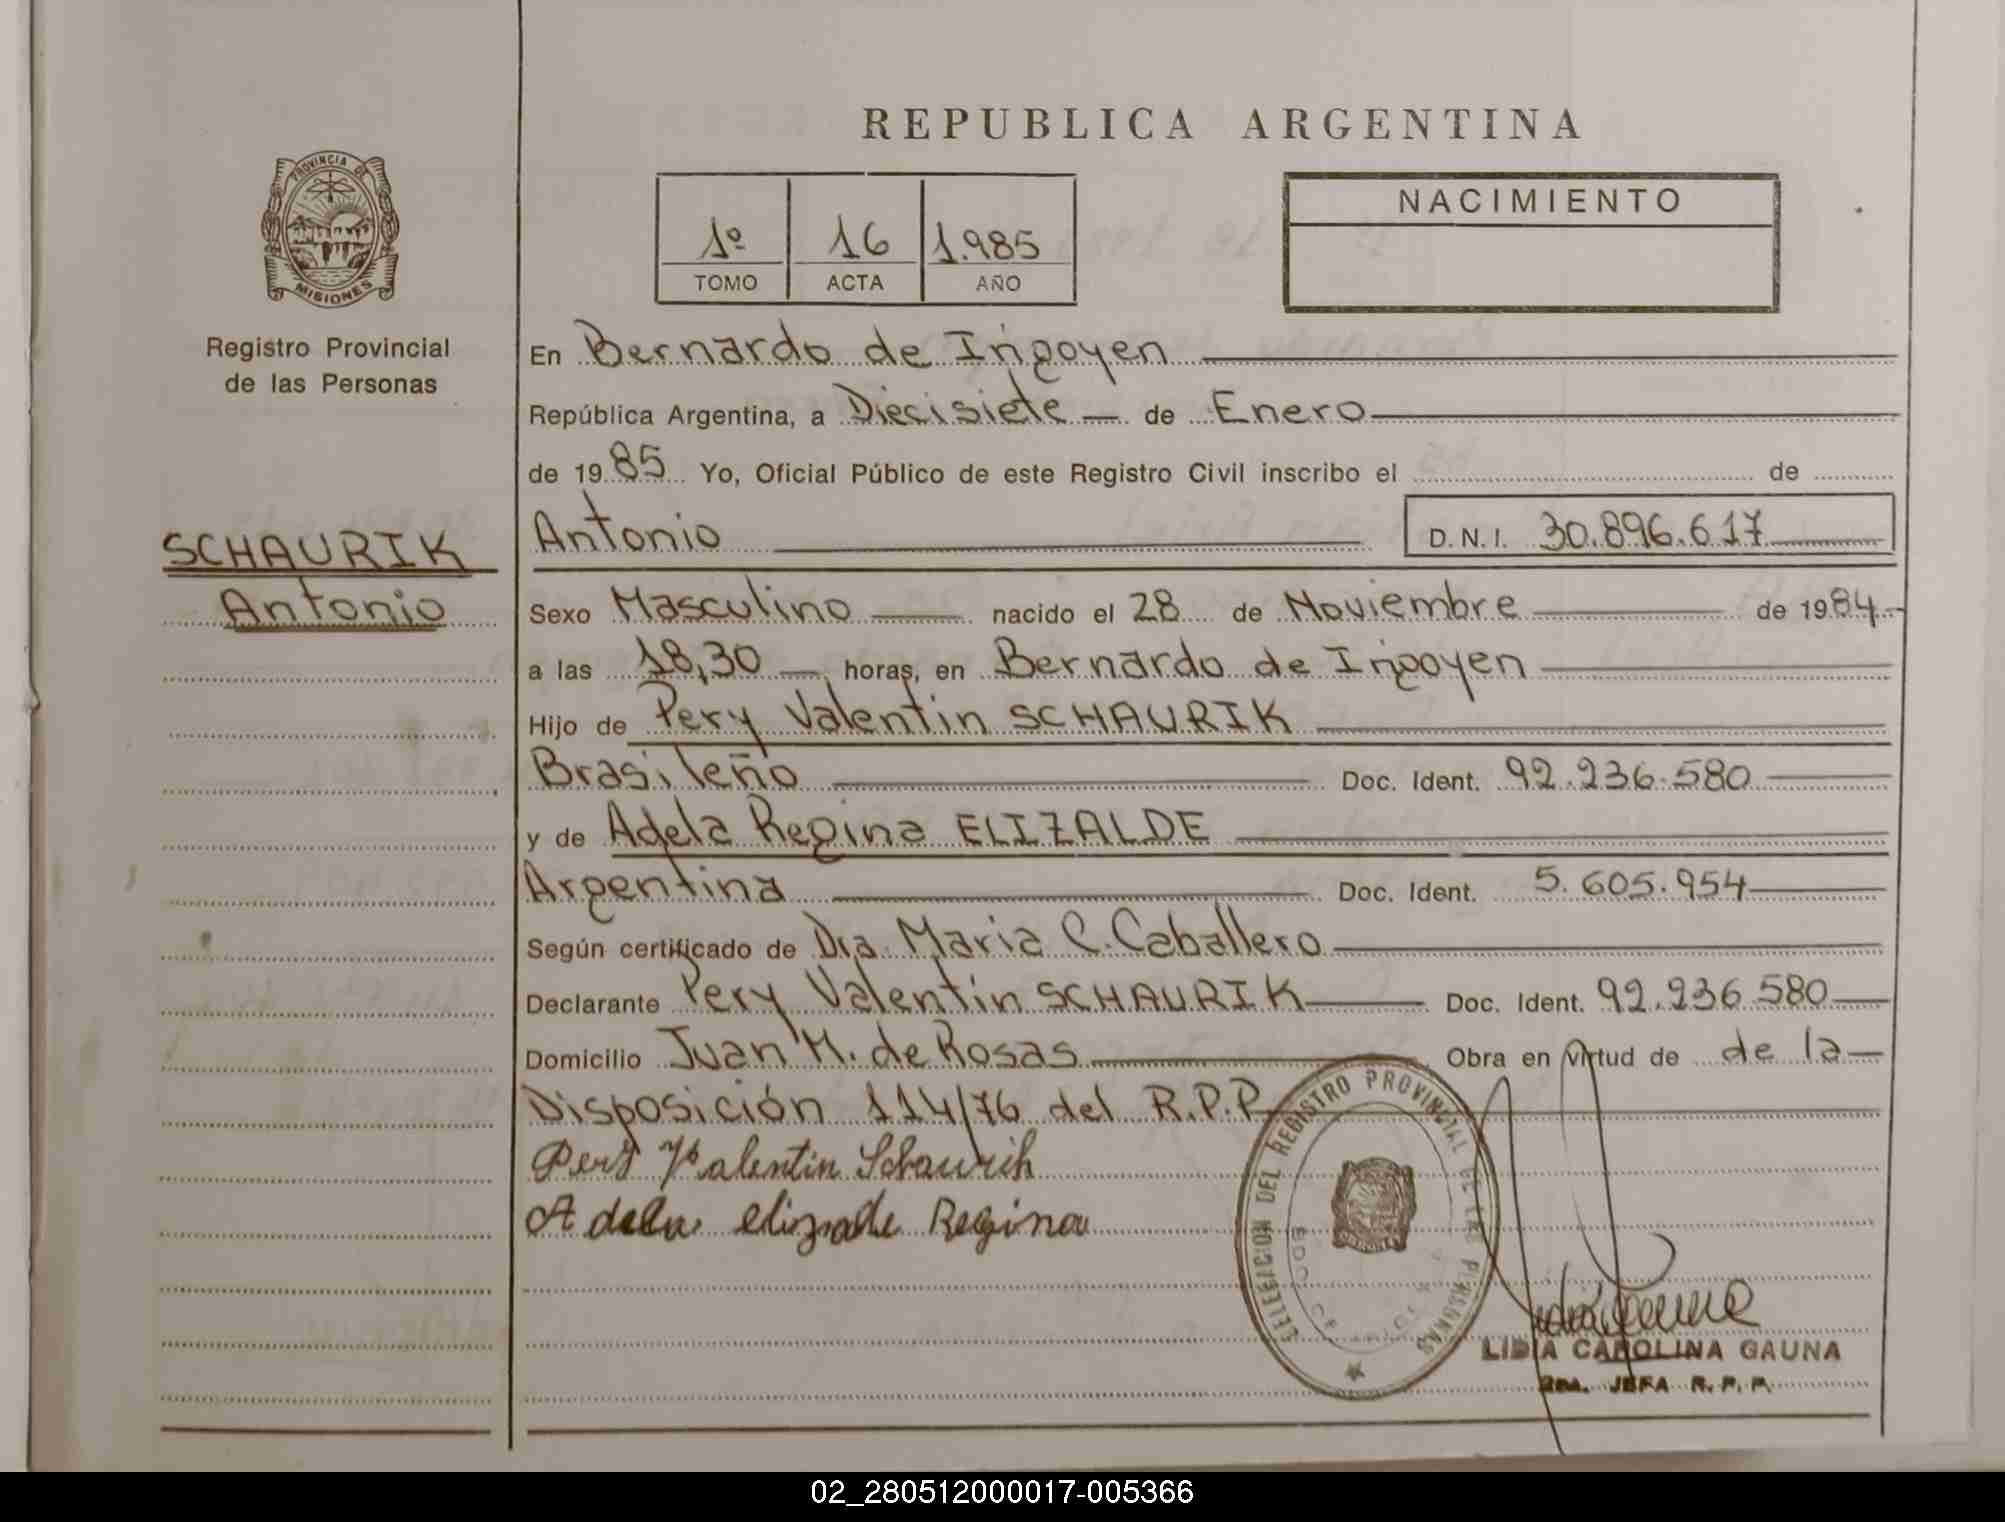 REPUBLICA ARGENTINA
PROVINCIA DE
MISIONES
Registro Provincial
de las Personas
1º 16 1.985
TOMO ACTA AÑO
NACIMIENTO
En Bernardo de Irigoyen
República Argentina, a Diecisiete de Enero
de 1985 Yo, Oficial Público de este Registro Civil inscribo el de
SCHAURIK
Antonio
Antonio D.N.I. 30.896.617
Sexo Masculino nacido el 28 de Noviembre de 1984
a las 18,30 horas, en Bernardo de Irigoyen
Hijo de Pery Valentin SCHAURIK
Brasileño Doc. Ident. 92.236.580
y de Adela Regina ELIZALDE
Argentina Doc. Ident. 5.605.954
Según certificado de Dra. Maria C. Caballero
Declarante Pery Valentin SCHAURIK Doc. Ident. 92.236.580
Domicilio Juan M. de Rosas Obra en virtud de de la
Disposición 114/76 del R.P.P.
Pery Valentin Schaurik
Adela elizalde Regina
DELEGACION DEL REGISTRO PROVINCIAL DE LAS PERSONAS
LIDIA CAROLINA GAUNA
JEFA R.P.P.
02_280512000017-005366